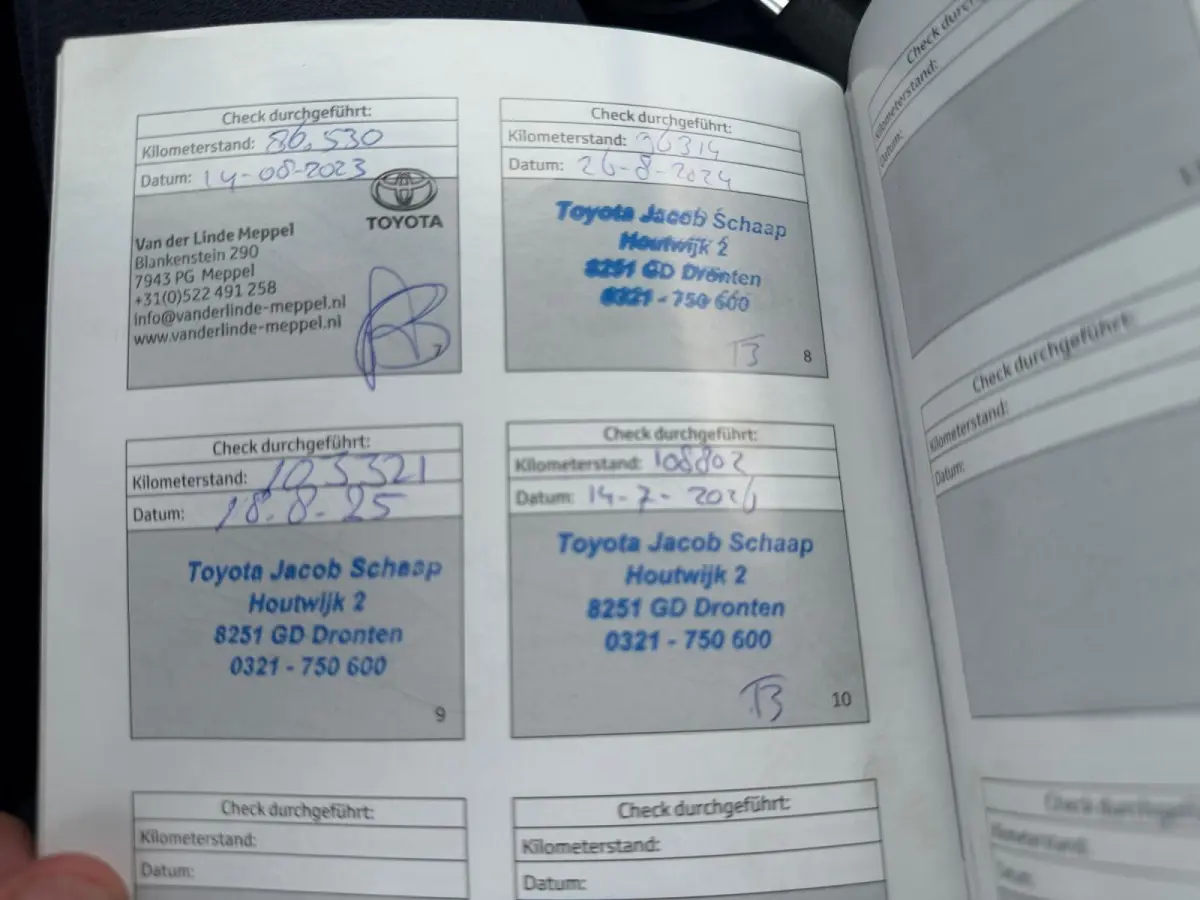 Check durchgeführt:
Kilometerstand: 86.530
Datum: 14-08-2023
TOYOTA
Van der Linde Meppel
Blankenstein 290
7943 PG Meppel
+31(0)522 491 258
info@vanderlinde-meppel.nl
www.vanderlinde-meppel.nl
7
Check durchgeführt:
Kilometerstand: 96314
Datum: 26-8-2024
Toyota Jacob Schaap
Houtwijk 2
8251 GD Dronten
0321 - 750 600
TB
8
Check durchgeführt:
Kilometerstand: 103321
Datum: 18.8-25
Toyota Jacob Schaap
Houtwijk 2
8251 GD Dronten
0321 - 750 600
9
Check durchgeführt:
Kilometerstand: 108802
Datum: 14-7-2026
Toyota Jacob Schaap
Houtwijk 2
8251 GD Dronten
0321 - 750 600
TB
10
Check durchgeführt:
Kilometerstand:
Datum:
Check durchgeführt:
Kilometerstand:
Datum:
Check durchgeführt:
Kilometerstand:
Datum:
Check durchgeführt:
Kilometerstand:
Datum:
Check durchgeführt:
Kilometerstand: